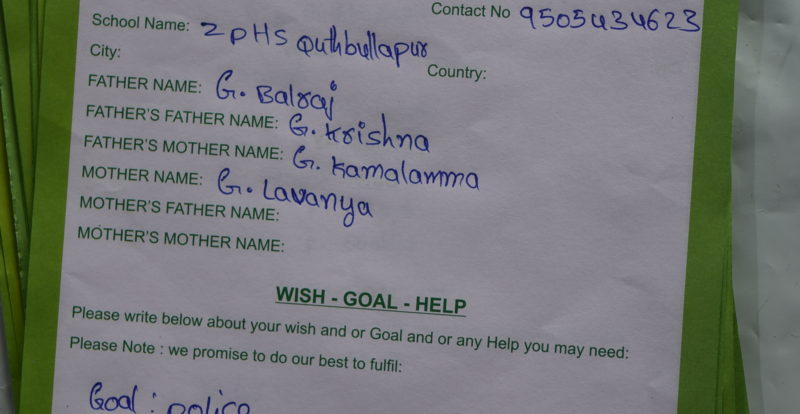 Contact No 9505434623
School Name: ZPHS Quthbullapur
City: Country:
FATHER NAME: G. Balraj
FATHER'S FATHER NAME: G. Krishna
FATHER'S MOTHER NAME: G. Kamalamma
MOTHER NAME: G. Lavanya
MOTHER'S FATHER NAME:
MOTHER'S MOTHER NAME:
WISH - GOAL - HELP
Please write below about your wish and or Goal and or any Help you may need:
Please Note : we promise to do our best to fulfil:
Goal : police